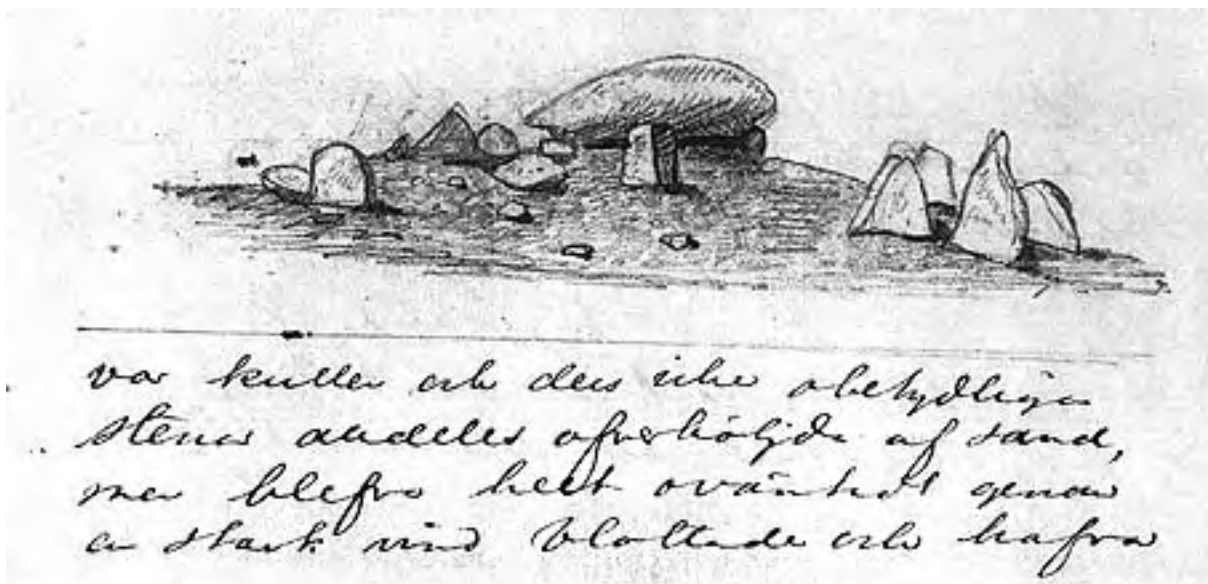 var kullen och dess icke obetydliga
stenar alldeles öfverhöljda af sand,
men blefvo helt oväntadt genom
en stark vind blottade och hafva